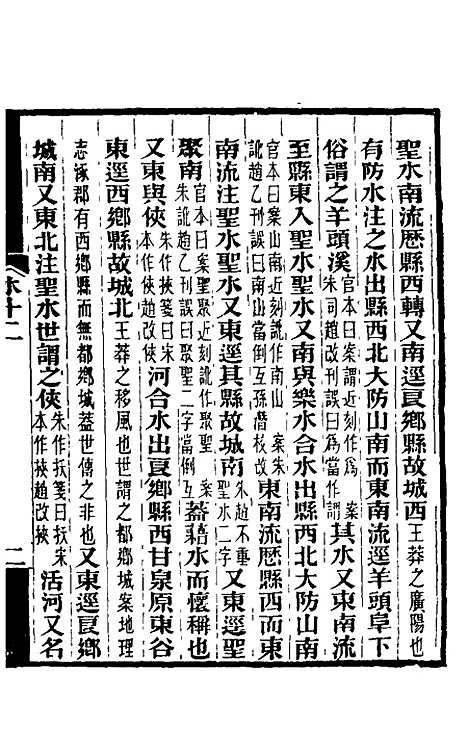 聖水南流歷縣西轉又南逕良鄉縣故城西王莽之廣陽也
有防水注之水出縣西北大防山南而東南流逕羊頭阜下
俗謂之羊頭溪官本曰案謂近刻作爲 案朱司趙改刊誤曰爲當作謂其水又東南流
至縣東入聖水聖水又南與樂水合水出縣西北大防山南
官本曰案山南近刻訛作南山 案朱訛趙乙刊誤曰南山當倒互孫潛校改東南流歷縣西而東
南流注聖水聖水又東逕其縣故城南朱趙不重聖水二字又東逕聖
聚南官本曰案聖聚近刻訛作聚聖 案朱訛趙乙刊誤曰聚聖二字當倒互蓋藉水而懷稱也
又東與俠朱作挾箋曰宋本作俠趙改俠河合水出良鄉縣西甘泉原東谷
東逕西鄉縣故城北王莽之移風也世謂之都鄉城案地理
志涿郡有西鄉縣而無都鄉城蓋世傳之非也又東逕良鄉
城南又東北注聖水世謂之俠朱作扶箋曰宋本作挾趙改俠活河又名
水十二
二